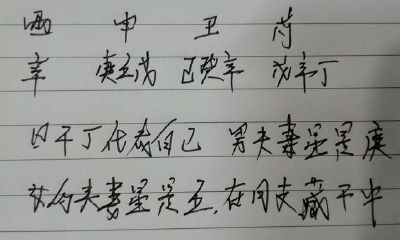 酉 申 丑 戌
辛 庚壬戊 己癸辛 戊辛丁
日干丁代表自己 男夫妻星是庚
女的夫妻星是壬,在月支藏干中